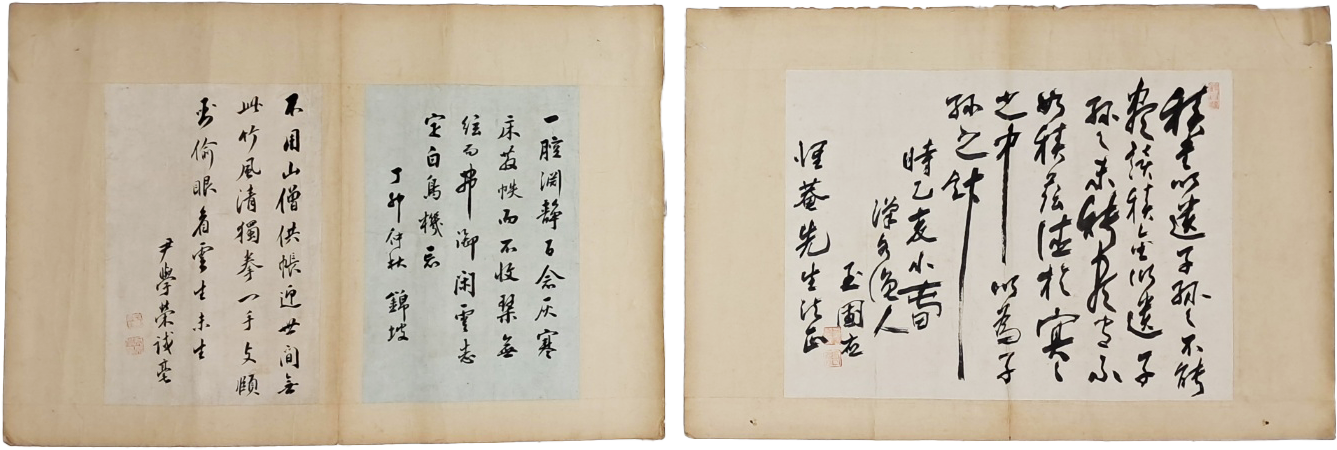 一腔淵静百念灰寒
床散帙而不收琴無
絃而弗御閑雲志
定白鳥機忘
丁卯仲秋 錦坡
不用山僧供帳迎世間無
此竹風清獨拳一手支頤
臥偷眼看雲生未生
尹學榮試毫
積書以遺子孫〻不能
盡讀積金以遺子
孫〻未能盡守不
如積陰德於冥〻
之中以為子
孫之計
時乙亥小春
漢水漁人
玉圃
惺菴先生法正